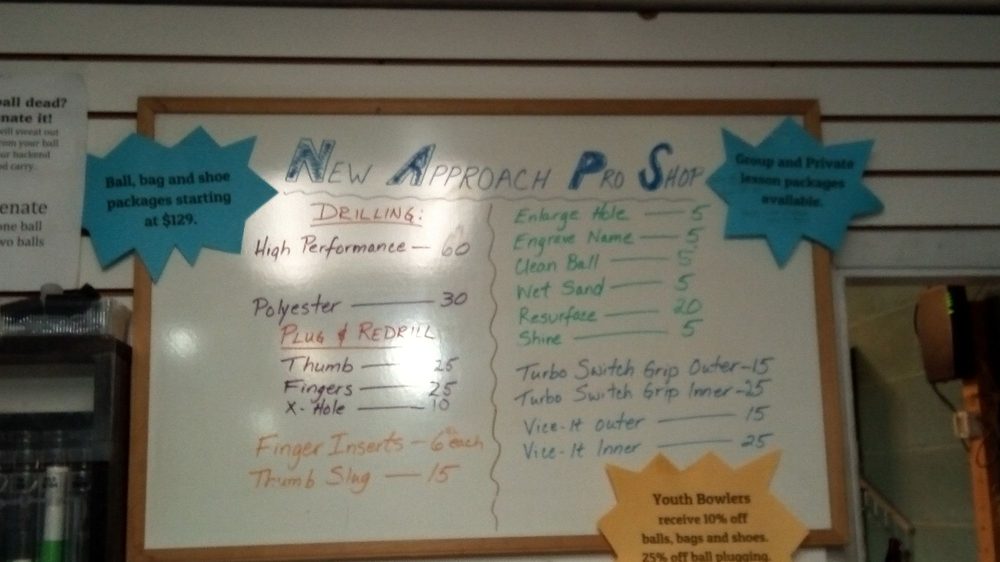 all dead?
nate it!
will sweat out
rom your ball
ur backend
d carry.
enate
one ball
wo balls
Ball, bag and shoe
packages starting
at $129.
NEW APPROACH PRO SHOP
Group and Private
lesson packages
available.
DRILLING:
High Performance — 60
Polyester — 30
PLUG & REDRILL
Thumb — 25
Fingers — 25
X-Hole — 10
Finger Inserts — 6 each
Thumb Slug — 15
Enlarge Hole — 5
Engrave Name — 5
Clean Ball — 5
Wet Sand — 5
Resurface — 20
Shine — 5
Turbo Switch Grip Outer-15
Turbo Switch Grip Inner-25
Vice-It outer — 15
Vice-It Inner — 25
Youth Bowlers
receive 10% off
balls, bags and shoes.
25% off ball plugging.